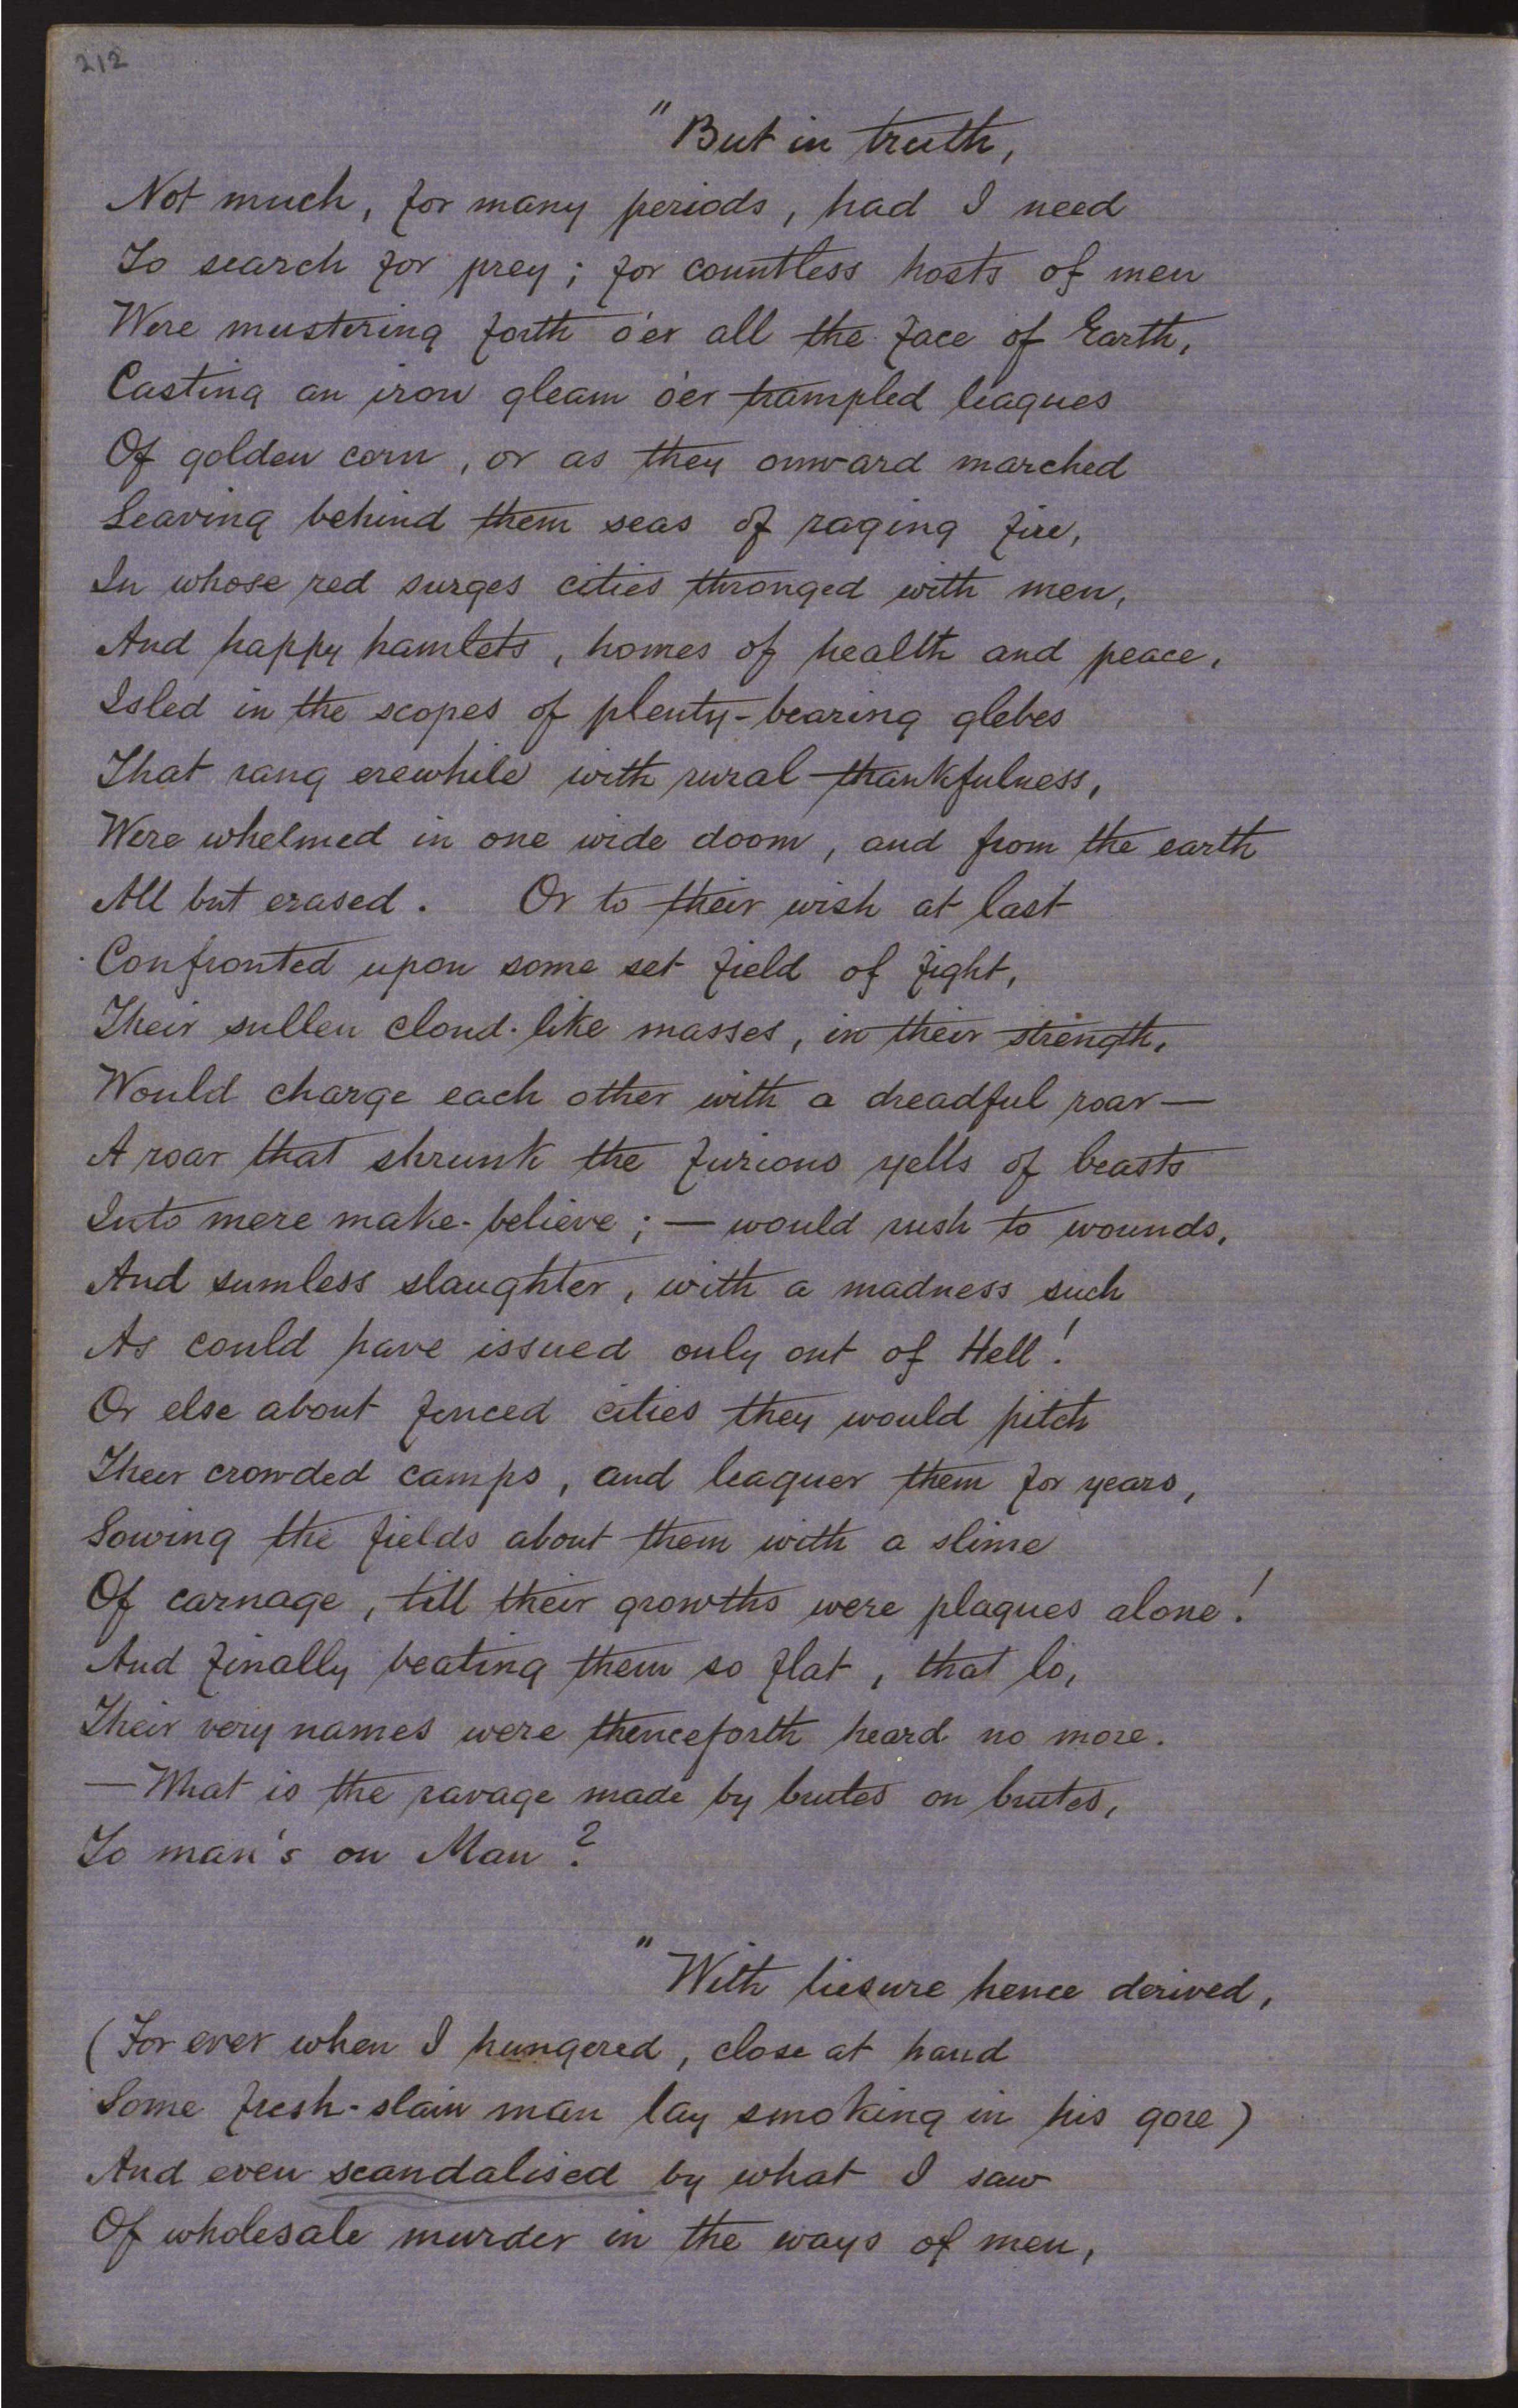 212
"But in truth,
Not much, for many periods, had I need
To search for prey; for countless hosts of men
Were mustering forth o'er all the face of Earth,
Casting an iron gleam o'er trampled leagues
Of golden corn, or as they onward marched
Leaving behind them seas of raging fire,
In whose red surges cities thronged with men,
And happy hamlets, homes of health and peace,
Isled in the scopes of plenty-bearing glebes
That rang erewhile with rural thankfulness,
Were whelmed in one wide doom, and from the earth
All but erased. Or to their wish at last
Confronted upon some set field of fight,
Their sullen cloud-like masses, in their strength,
Would charge each other with a dreadful roar—
A roar that shrunk the furious yells of beasts
Into mere make-believe; — would rush to wounds,
And sumless slaughter, with a madness such
As could have issued only out of Hell!
Or else about fenced cities they would pitch
Their crowded camps, and leaguer them for years,
Sowing the fields about them with a slime
Of carnage, till their growths were plagues alone!
And finally beating them so flat, that lo,
Their very names were thenceforth heard no more.
—What is the ravage made by brutes on brutes,
To man's on Man?
"With liesure hence derived,
(For ever when I hungered, close at hand
Some fresh-slain man lay smoking in his gore)
And even scandalised by what I saw
Of wholesale murder in the ways of men,